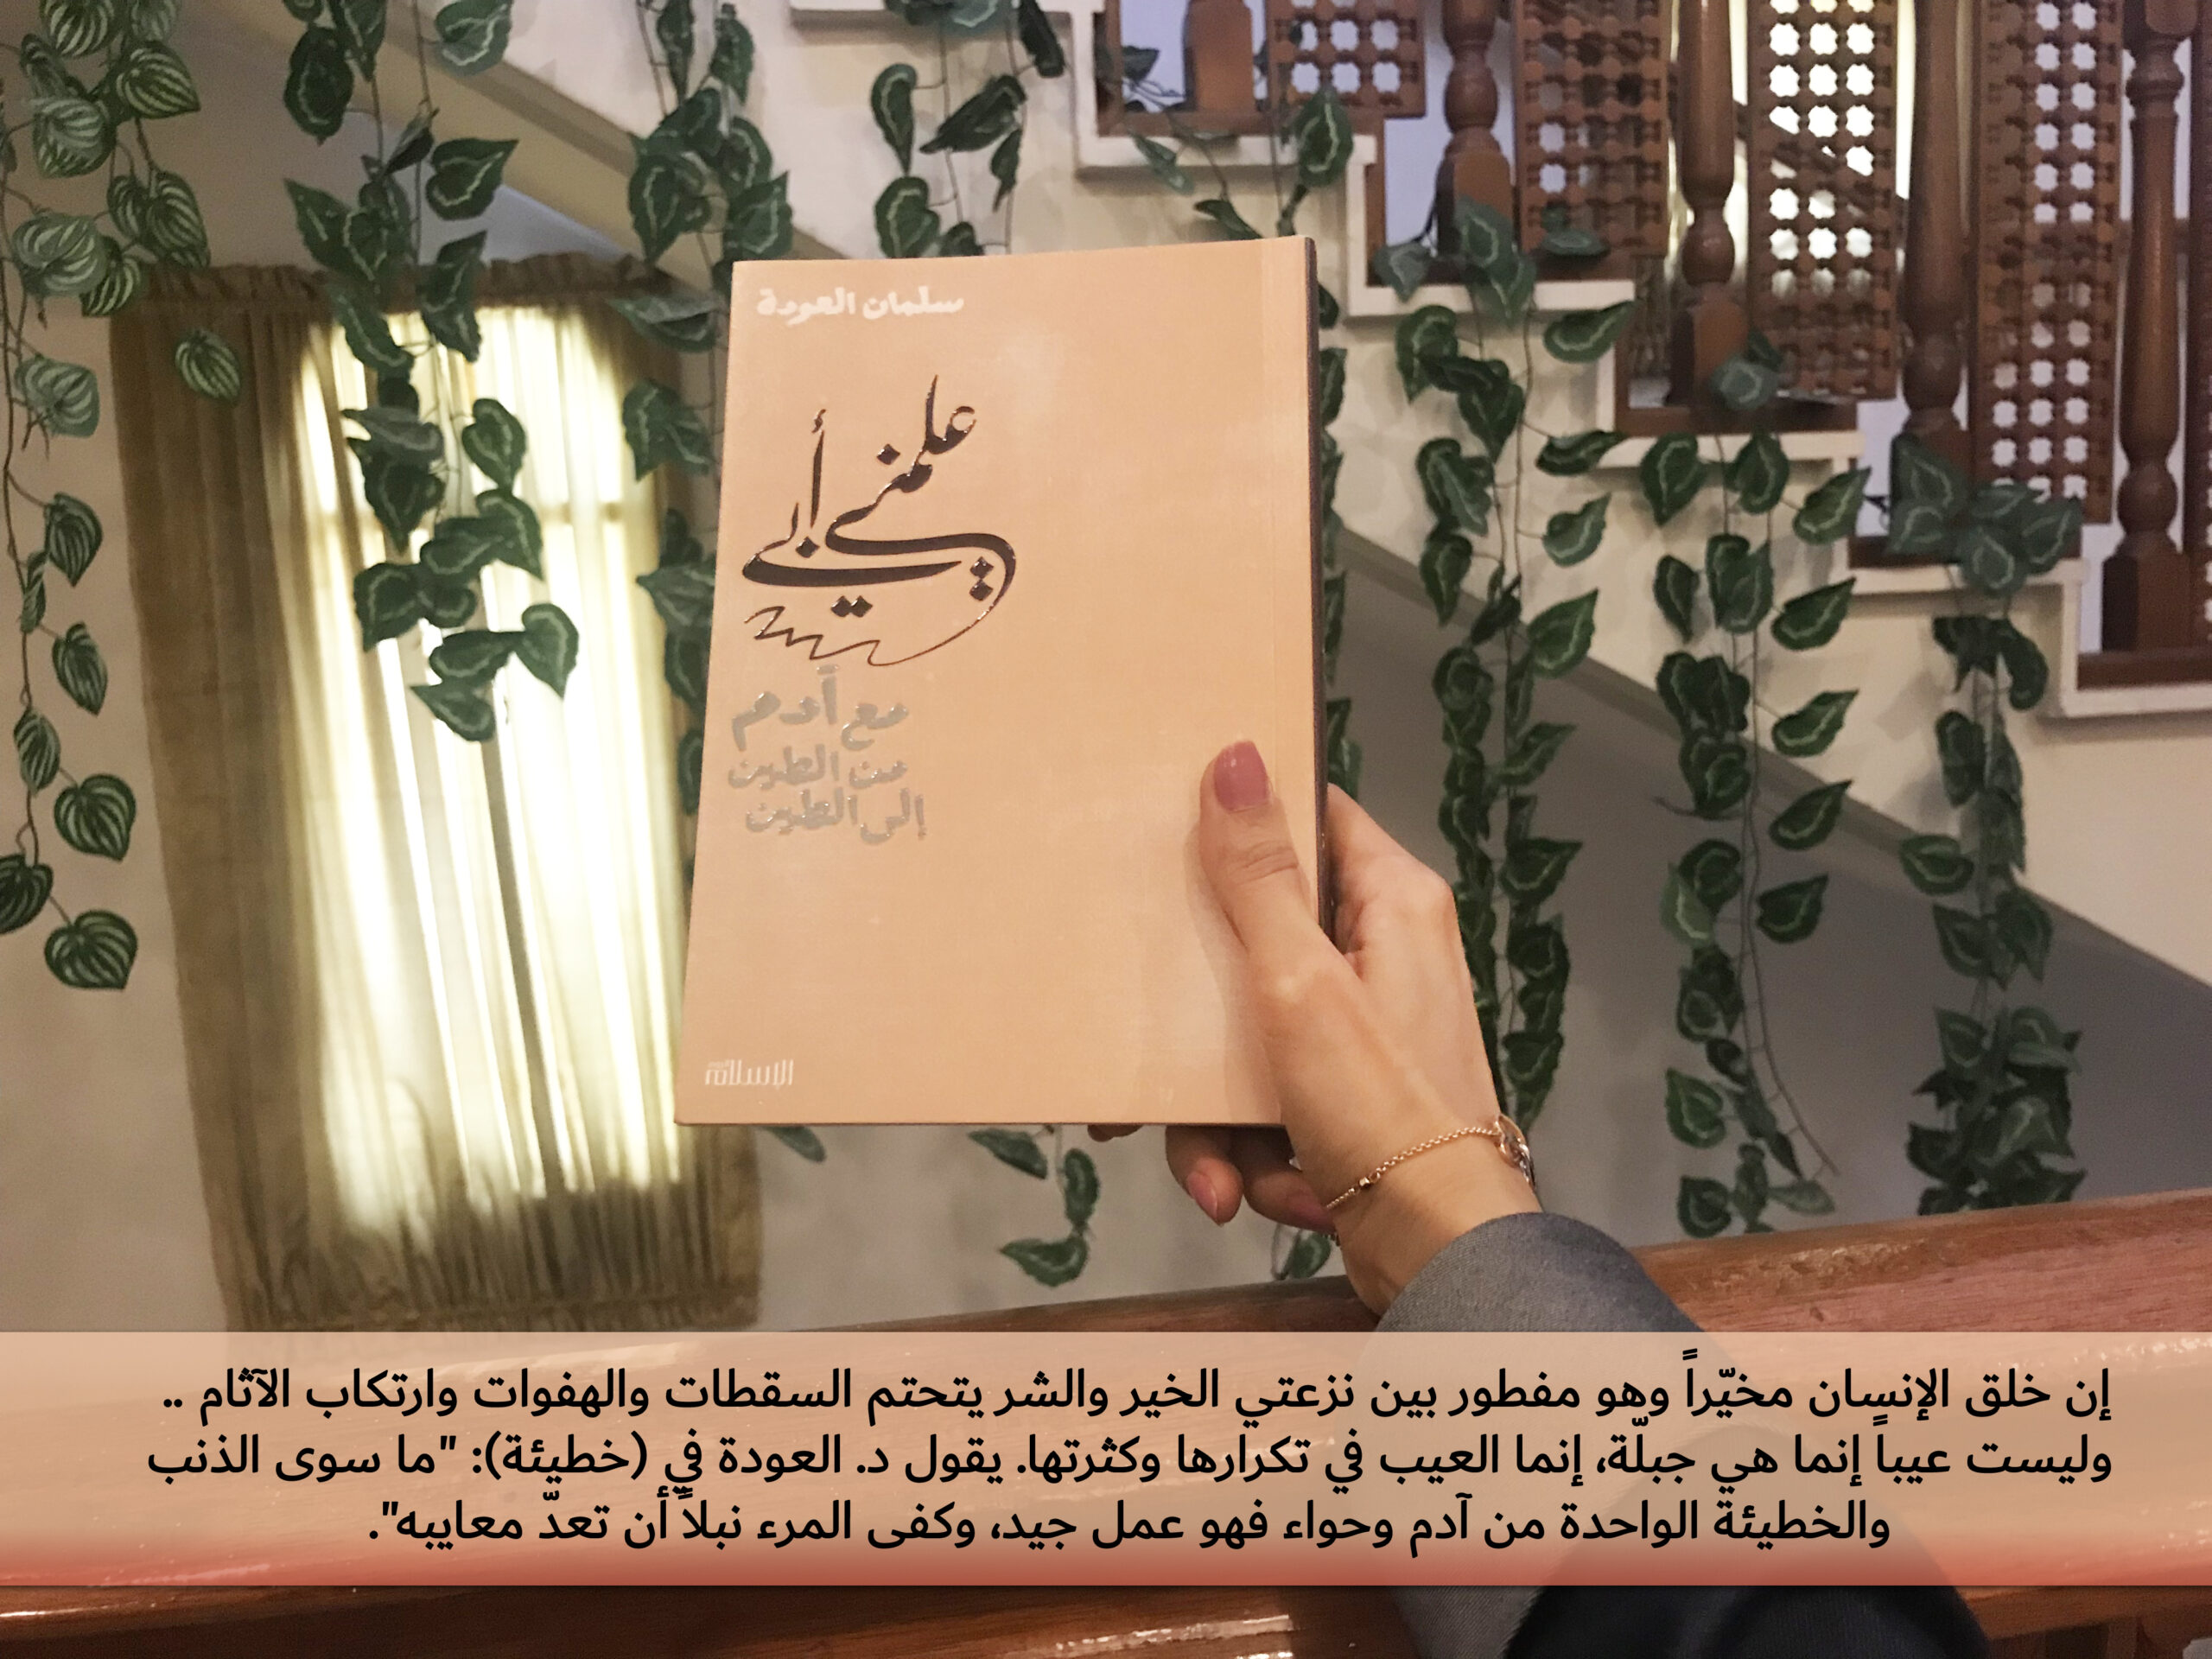 سلمان العودة
علمني أبي
مع آدم
من الطين
إلى الطين
الإسلام
إن خلق الإنسان مخيّراً وهو مفطور بين نزعتي الخير والشر يتحتم السقطات والهفوات وارتكاب الآثام ..
وليست عيباً إنما هي جبلّة، إنما العيب في تكرارها وكثرتها. يقول د. العودة في (خطيئة): "ما سوى الذنب
والخطيئة الواحدة من آدم وحواء فهو عمل جيد، وكفى المرء نبلاً أن تعدّ معاييبه".